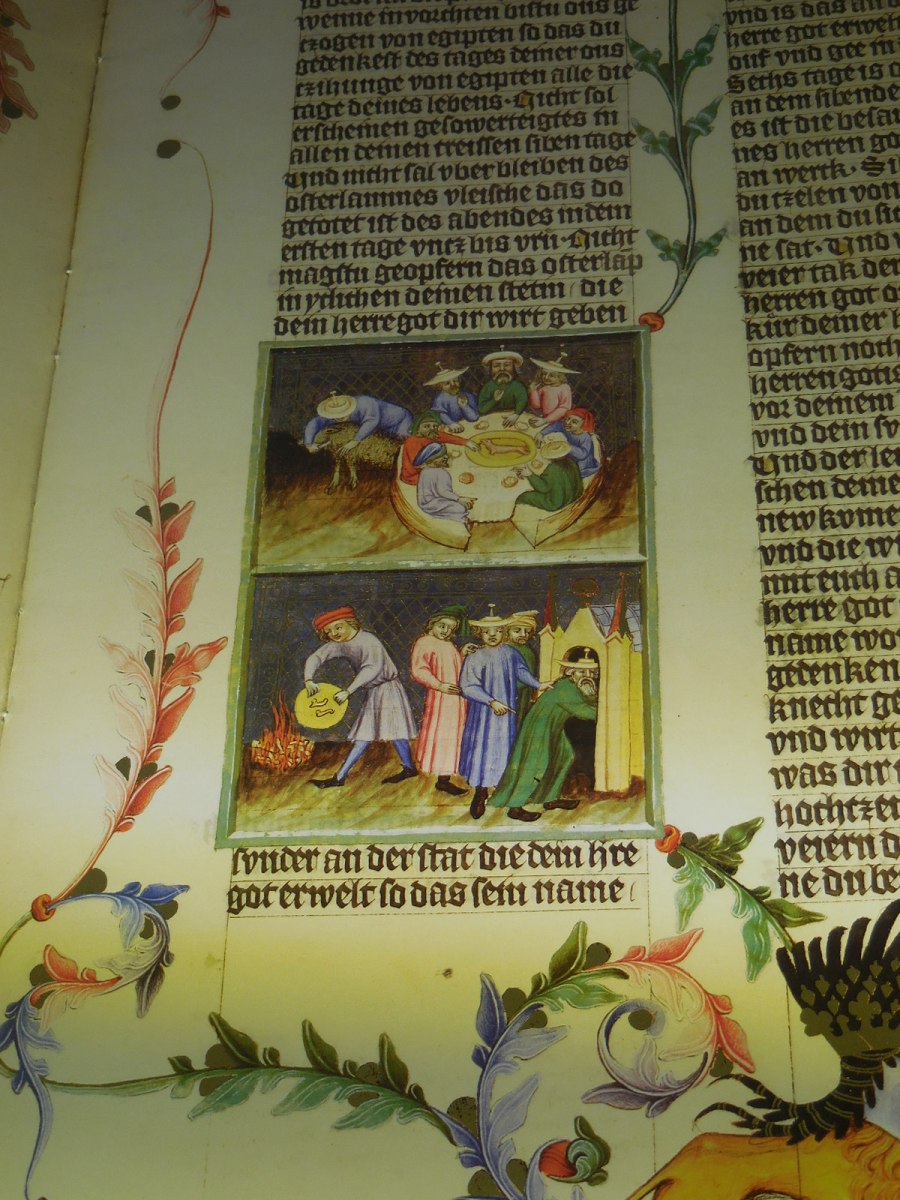 wenne in vorchten bistu ons ge
tzogen von egipten so das du
gedenkest des tages deiner ous
tzihunge von egipten alle die
tage deines lebens. Nicht sol
erscheinen gesowerteigtes in
allen deinen treissen siben tage
Und nicht sal vber bleiben des
osterlammes vleische das do
getotet ist des abendes in dem
ersten tage vntz bis vru. Nicht
magstu geopfern das osterlap
in yclichen deinen stetin die
dein herre got dir wirt geben
svnder an der stat die dein hre
got erwelt so das sein name
vnd is das an
herre got erweh
ouf vnd gee in
Sechs tage is
an dem sibende
es ist die besa
nes herren go
an werck.
du tzelen von
an dem du sic
ne sat. Und
veier tak der
herren got
kür deiner
opfern noch
herren gotis
vor deinem
vnd dein sv
Und der lei
schen deine
new kvme
vnd die wi
mit euch a
herre got
name wo
gedenken
knecht ge
vnd wirt
was dir
hochtzei
veiern d
ne du be